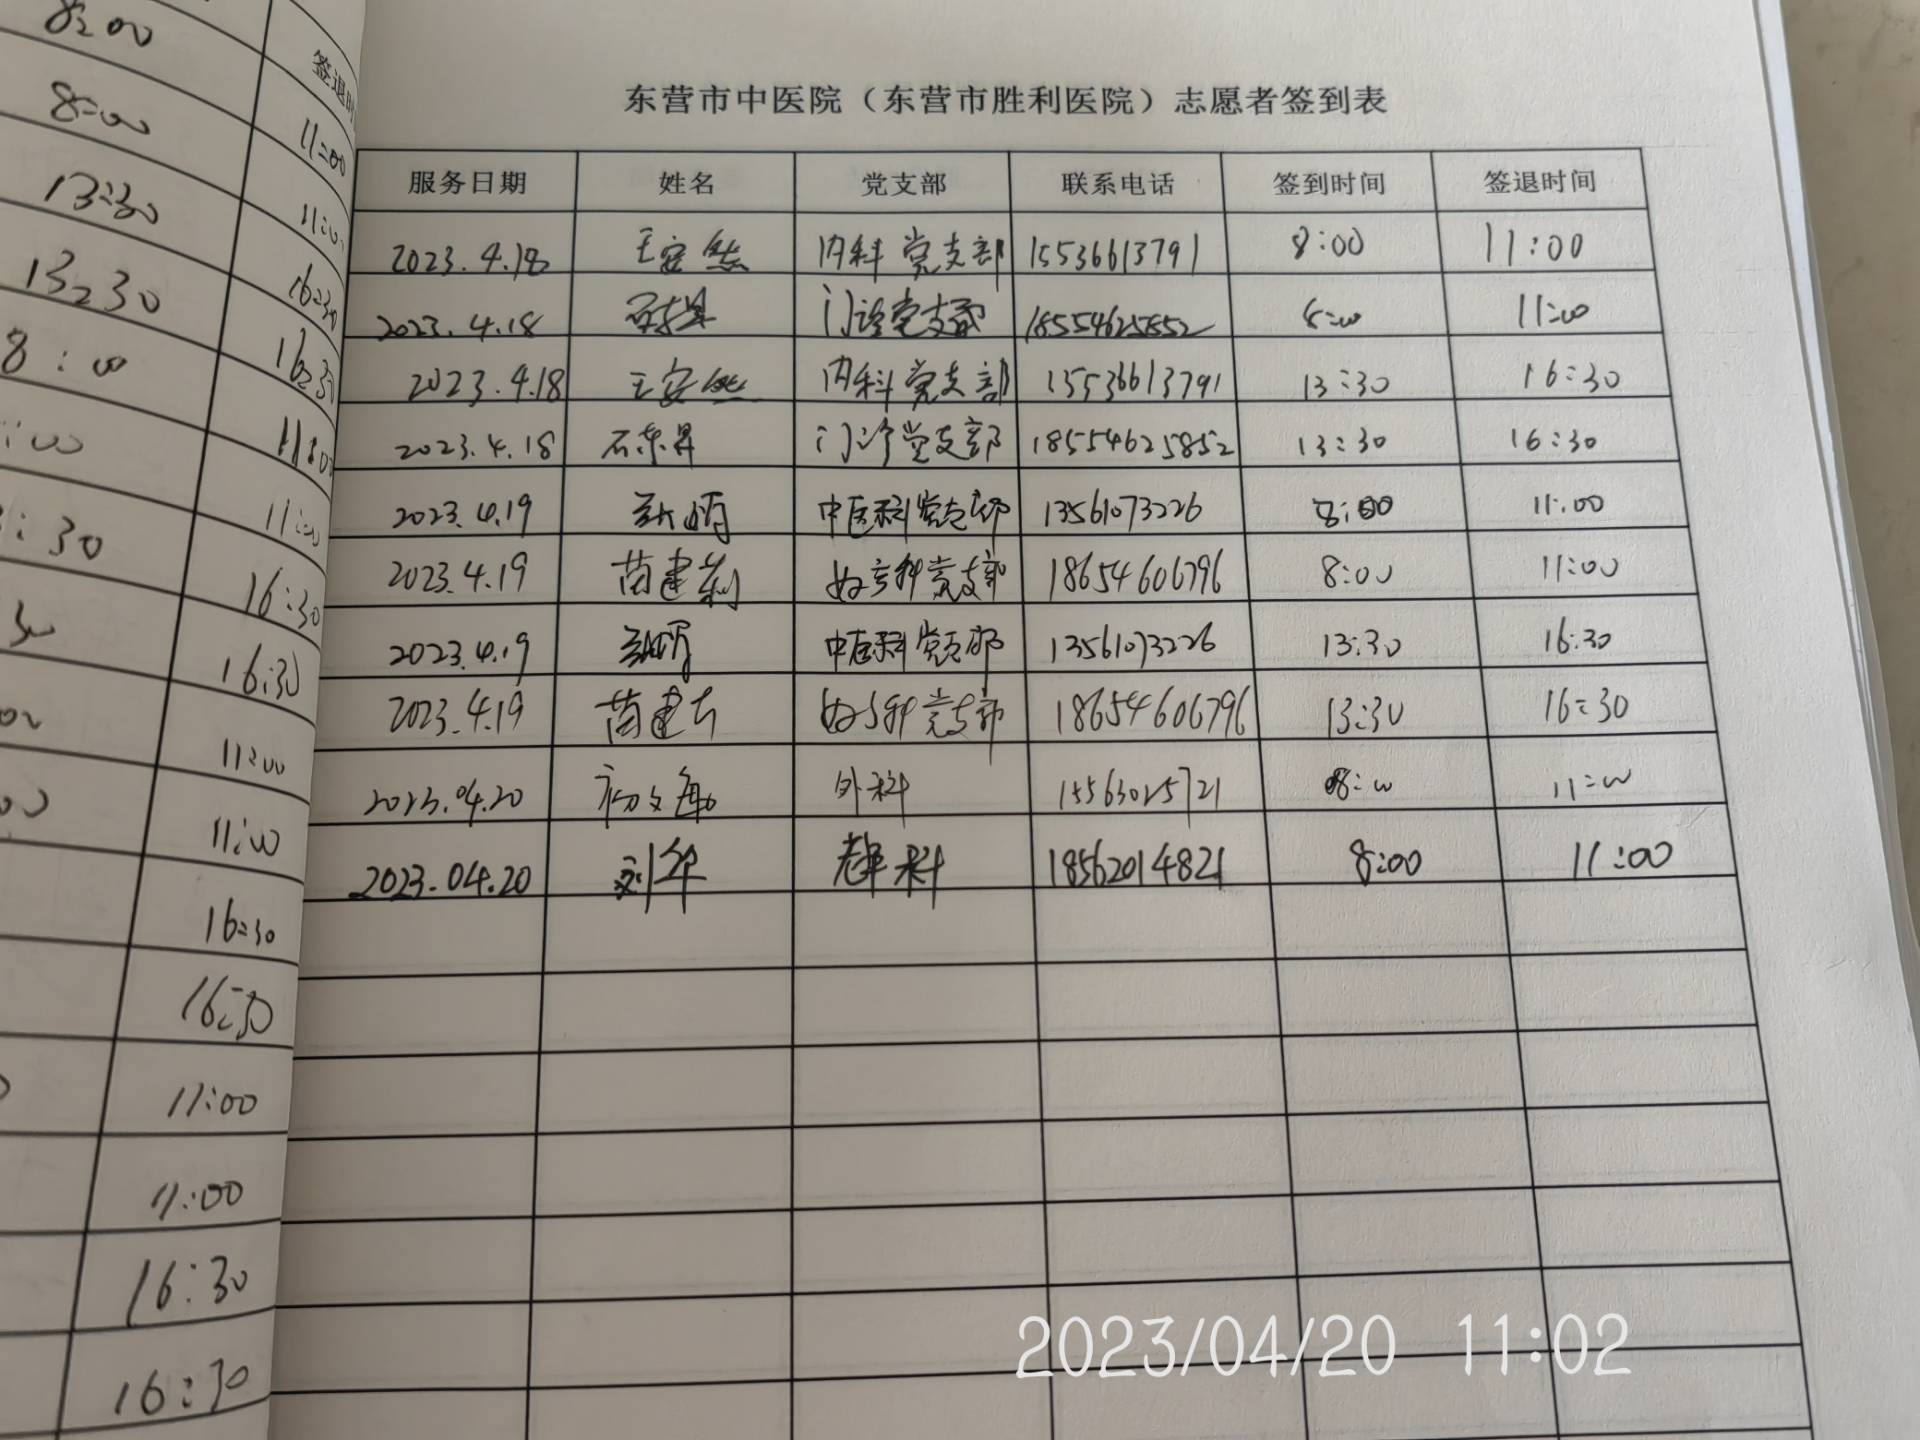 东营市中医院（东营市胜利医院）志愿者签到表
服务日期 姓名 党支部 联系电话 签到时间 签退时间
2023.4.18 王安然 内科党支部 15536613791 8:00 11:00
2023.4.18 门诊党支部 18554625852 8:00 11:00
2023.4.18 王安然 内科党支部 15536613791 13:30 16:30
2023.4.18 石东昇 门诊党支部 18554625852 13:30 16:30
2023.4.19 中医科党支部 13561073226 8:00 11:00
2023.4.19 苗建 妇产科党支部 18654606796 8:00 11:00
2023.4.19 中医科党支部 13561073226 13:30 16:30
2023.4.19 苗建 妇产科党支部 18654606796 13:30 16:30
2023.04.20 初文 外科 15563025721 8:00 11:00
2023.04.20 刘华 科 18562014821 8:00 11:00
8:00 签退时
8:00 11:00
13:30 11:00
13:30 16:30
8:00 16:30
:00 11:00
:30 11:00
16:30
16:30
11:00
11:00
16:30
16:30
11:00
11:00
16:30
16:30
2023/04/20 11:02